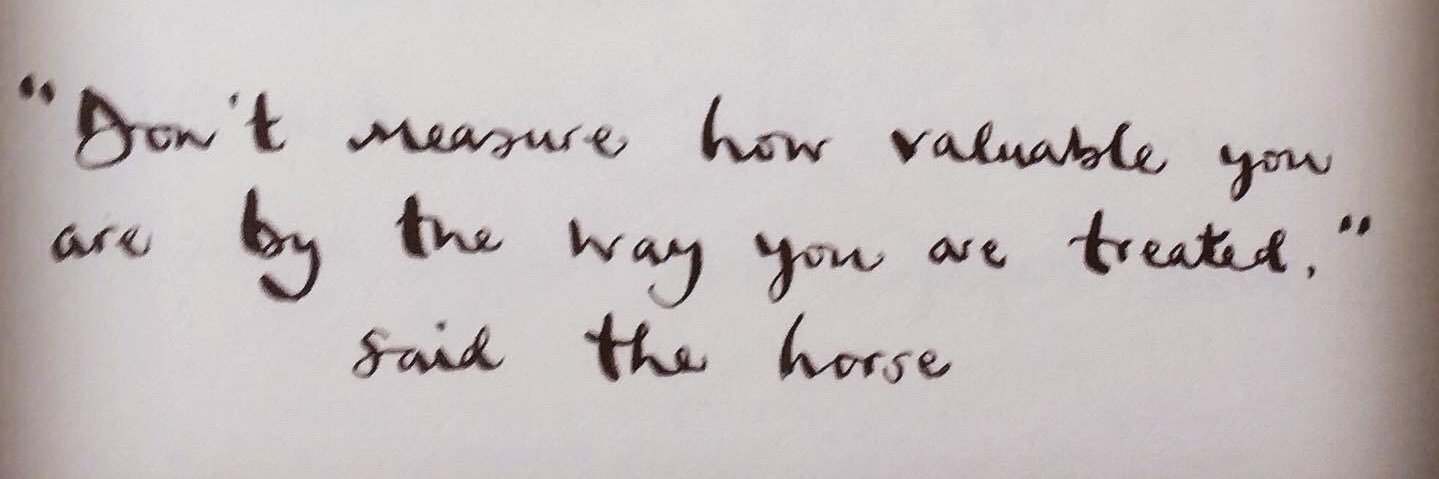 "Don't measure how valuable you
are by the way you are treated,"
said the horse